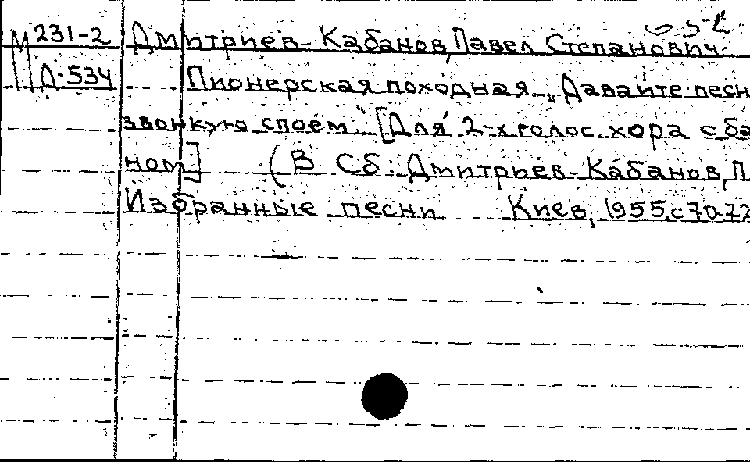 М 231-2 Дмитриев-Кабанов, Павел Степанович
Д-534 Пионерская походная „Давайте песн
звонкую споём". [Для 2-х голос. хора с ба
ном] (В Сб. Дмитриев-Кабанов, П
Избранные песни Киев, 1955, с 70-72